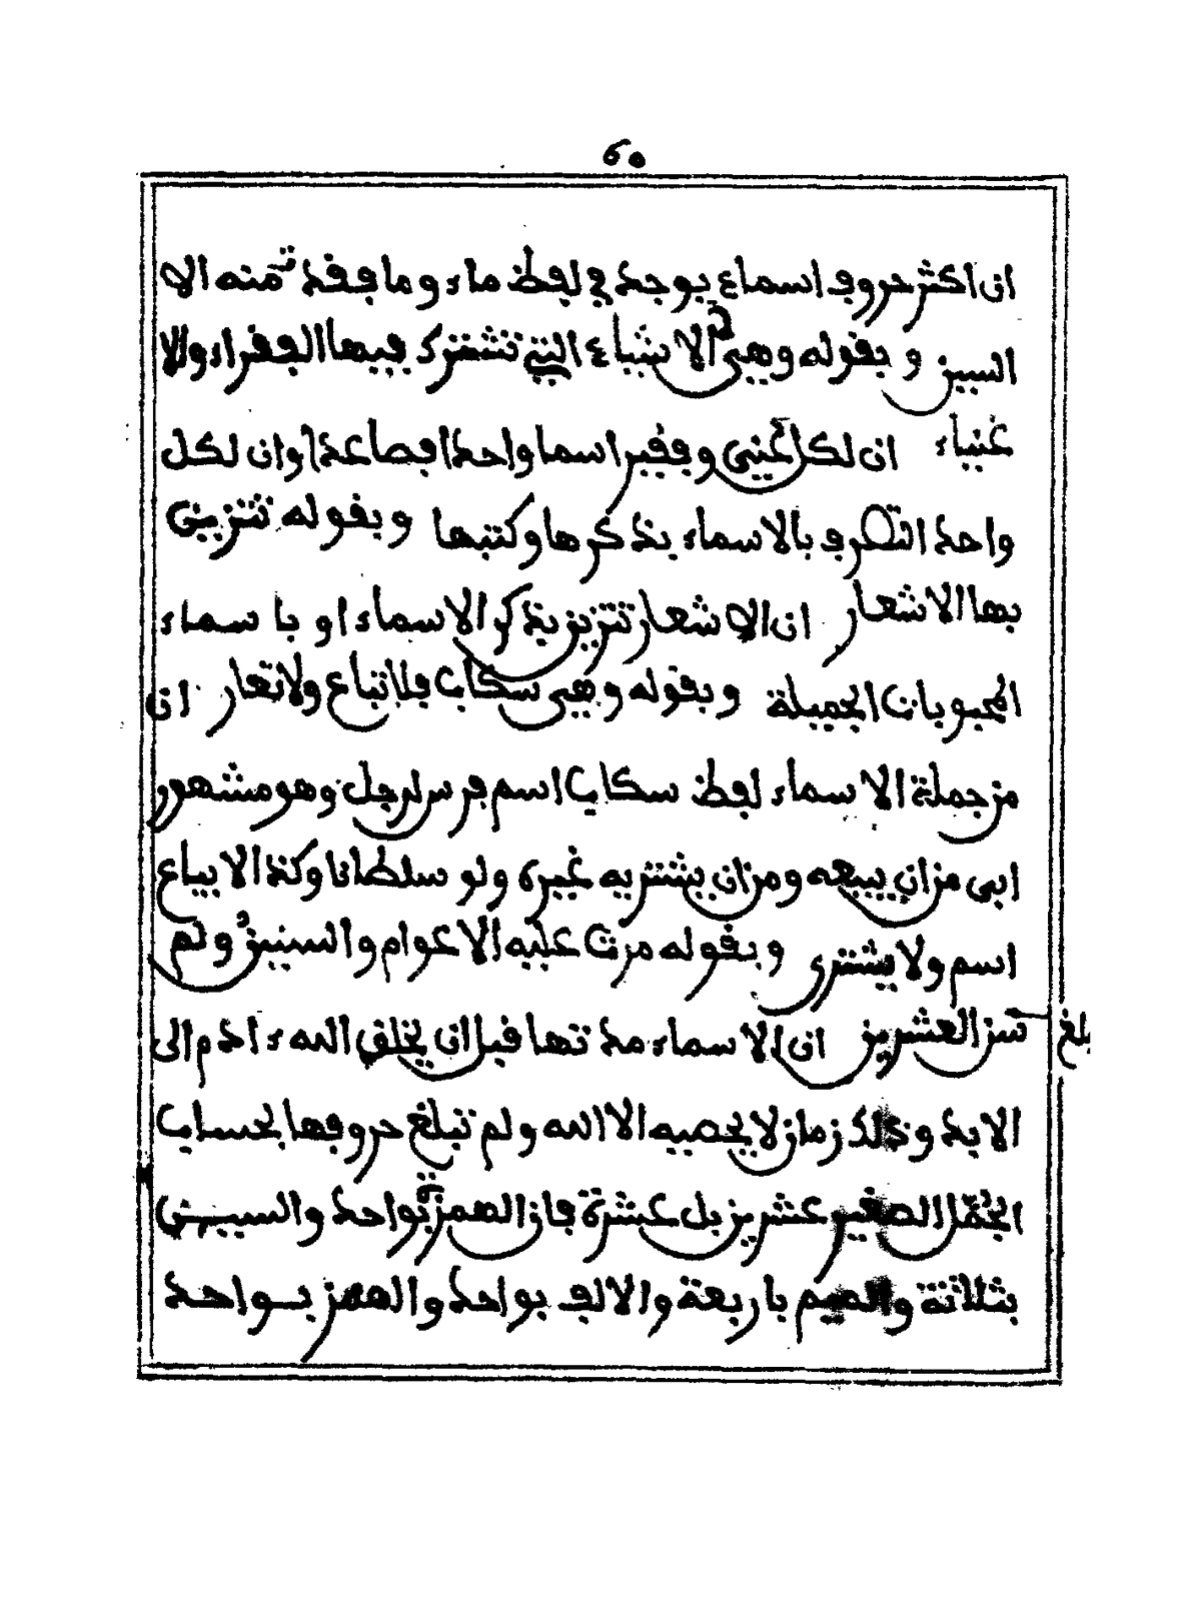 ٤٥
ان اكثر حروف اسماع يوجد في لفظ ماء وما فقد منه الا
السين وبقوله وهي الاشياء التي تشترك فيها الفقراء والا
غنياء ان لكل غني وفقير اسما واحدا فصاعدا وان لكل
واحد التصرف بالاسماء يذكرها وكتبها وبقوله تتزين
بها الاشعار ان الاشعار تتزين بذكر الاسماء او با سماء
المحبوبات الجميلة وبقوله وهي سكاب فلا تباع ولا تعار ان
من جملة الاسماء لفظ سكاب اسم فرس لرجل وهو مشهور
ابى من ان يبيعه ومن ان يشتريه غيره ولو سلطانا وكذا لا يباع
اسم ولا يشترى وبقوله مرت عليه الاعوام والسنين ولم
تبلغ سن العشرين ان الاسماء مدتها قبل ان يخلق الله ءادم الى
الابد وذلك زمان لا يحصيه الا الله ولم تبلغ حروفها بحساب
الجمل الصغير عشرين بل عشرة فان الهمزة بواحد والسين
بثلاثة والميم باربعة والالف بواحد والهمز بواحد